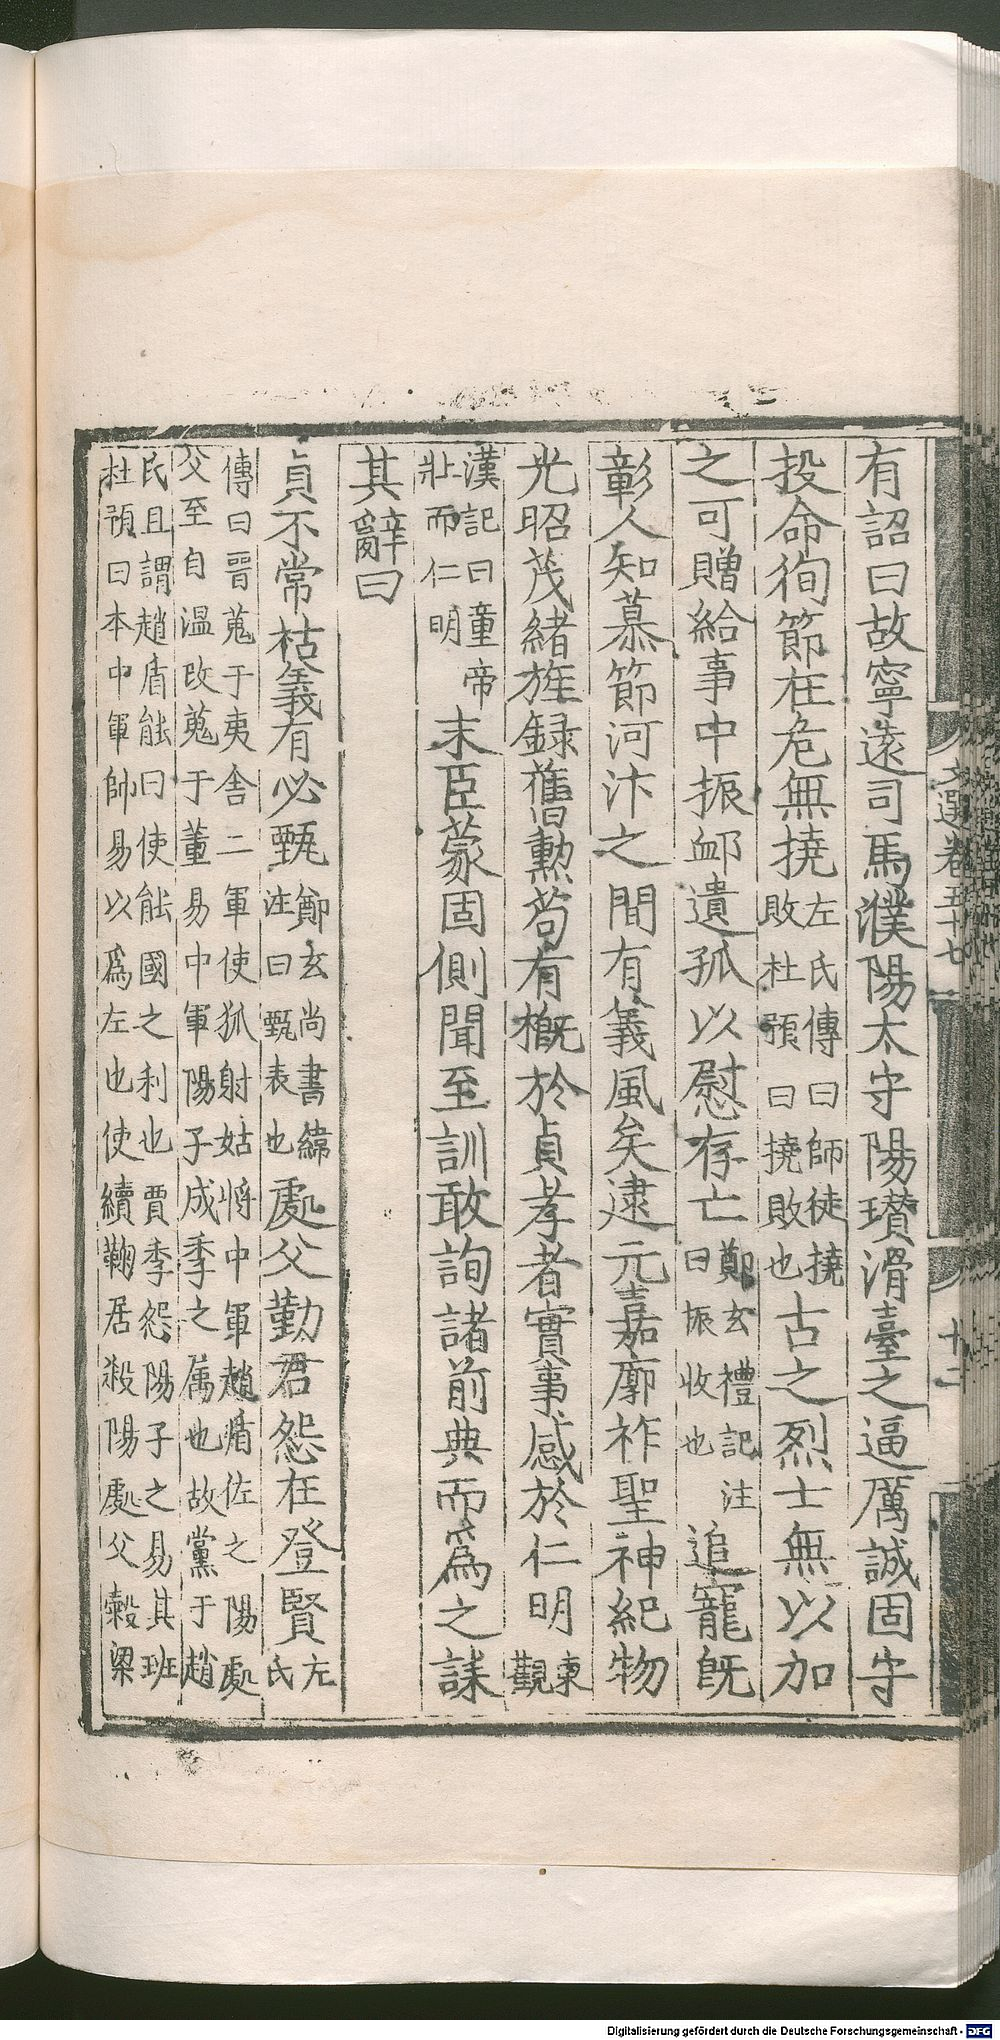 文選卷五十七
十二
有詔曰故寧遠司馬濮陽太守陽瓚滑臺之逼厲誠固守
投命徇節在危無撓左氏傳曰師徒撓
敗杜預曰撓敗也古之烈士無以加
之可贈給事中振卹遺孤以慰存亡鄭玄禮記注
曰振收也追寵旣
彰人知慕節河汴之間有義風矣逮元嘉廓祚聖神紀物
光昭茂緒旌録舊勲苟有概於貞孝者實事感於仁明東
觀
漢記曰童帝
壯而仁明末臣蒙固側聞至訓敢詢諸前典而爲之誄
其辭曰
貞不常祜義有必甄鄭玄尚書緯
注曰甄表也處父勤君怨在登賢左
氏
傳曰晉蒐于夷舎二軍使狐射姑將中軍趙盾佐之陽處
父至自温改蒐于董易中軍陽子成季之属也故黨于趙
氏且謂趙盾能曰使能國之利也賈季怨陽子之易其班
杜預曰本中軍帥易以爲左也使續鞠居殺陽處父糓梁
Digitalisierung gefördert durch die Deutsche Forschungsgemeinschaft - DFG